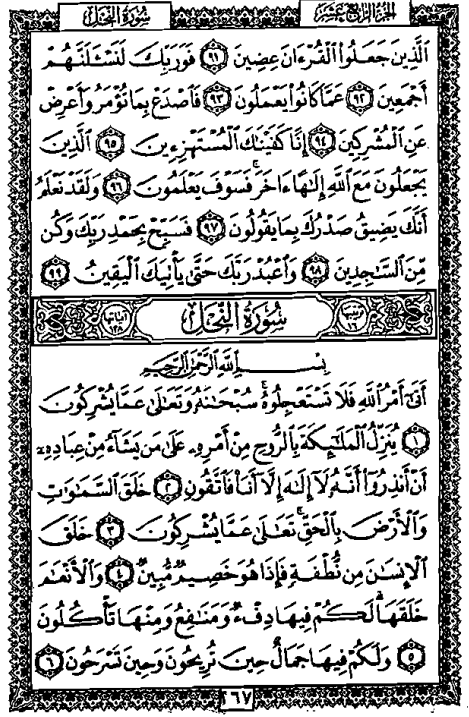 الجزء الرابع عشر سورة النحل
الَّذِينَ جَعَلُوا الْقُرْءَانَ عِضِينَ ٩١ فَوَرَبِّكَ لَنَسْـَٔلَنَّهُمْ
أَجْمَعِينَ ٩٢ عَمَّا كَانُوا يَعْمَلُونَ ٩٣ فَاصْدَعْ بِمَا تُؤْمَرُ وَأَعْرِضْ
عَنِ الْمُشْرِكِينَ ٩٤ إِنَّا كَفَيْنَٰكَ الْمُسْتَهْزِءِينَ ٩٥ الَّذِينَ
يَجْعَلُونَ مَعَ اللَّهِ إِلَٰهًا ءَاخَرَ ۚ فَسَوْفَ يَعْلَمُونَ ٩٦ وَلَقَدْ نَعْلَمُ
أَنَّكَ يَضِيقُ صَدْرُكَ بِمَا يَقُولُونَ ٩٧ فَسَبِّحْ بِحَمْدِ رَبِّكَ وَكُن
مِّنَ السَّٰجِدِينَ ٩٨ وَاعْبُدْ رَبَّكَ حَتَّىٰ يَأْتِيَكَ الْيَقِينُ ٩٩
ترتيبها ١٦ سورة النحل آياتها ١٢٨
بِسْمِ اللَّهِ الرَّحْمَٰنِ الرَّحِيمِ
أَتَىٰٓ أَمْرُ اللَّهِ فَلَا تَسْتَعْجِلُوهُ ۚ سُبْحَٰنَهُۥ وَتَعَٰلَىٰ عَمَّا يُشْرِكُونَ
١ يُنَزِّلُ الْمَلَٰٓئِكَةَ بِالرُّوحِ مِنْ أَمْرِهِۦ عَلَىٰ مَن يَشَآءُ مِنْ عِبَادِهِۦٓ
أَنْ أَنذِرُوٓا أَنَّهُۥ لَآ إِلَٰهَ إِلَّآ أَنَا۠ فَاتَّقُونِ ٢ خَلَقَ السَّمَٰوَٰتِ
وَالْأَرْضَ بِالْحَقِّ ۚ تَعَٰلَىٰ عَمَّا يُشْرِكُونَ ٣ خَلَقَ
الْإِنسَٰنَ مِن نُّطْفَةٍ فَإِذَا هُوَ خَصِيمٌ مُّبِينٌ ٤ وَالْأَنْعَٰمَ
خَلَقَهَا ۗ لَكُمْ فِيهَا دِفْءٌ وَمَنَٰفِعُ وَمِنْهَا تَأْكُلُونَ
٥ وَلَكُمْ فِيهَا جَمَالٌ حِينَ تُرِيحُونَ وَحِينَ تَسْرَحُونَ ٦
٢٦٧